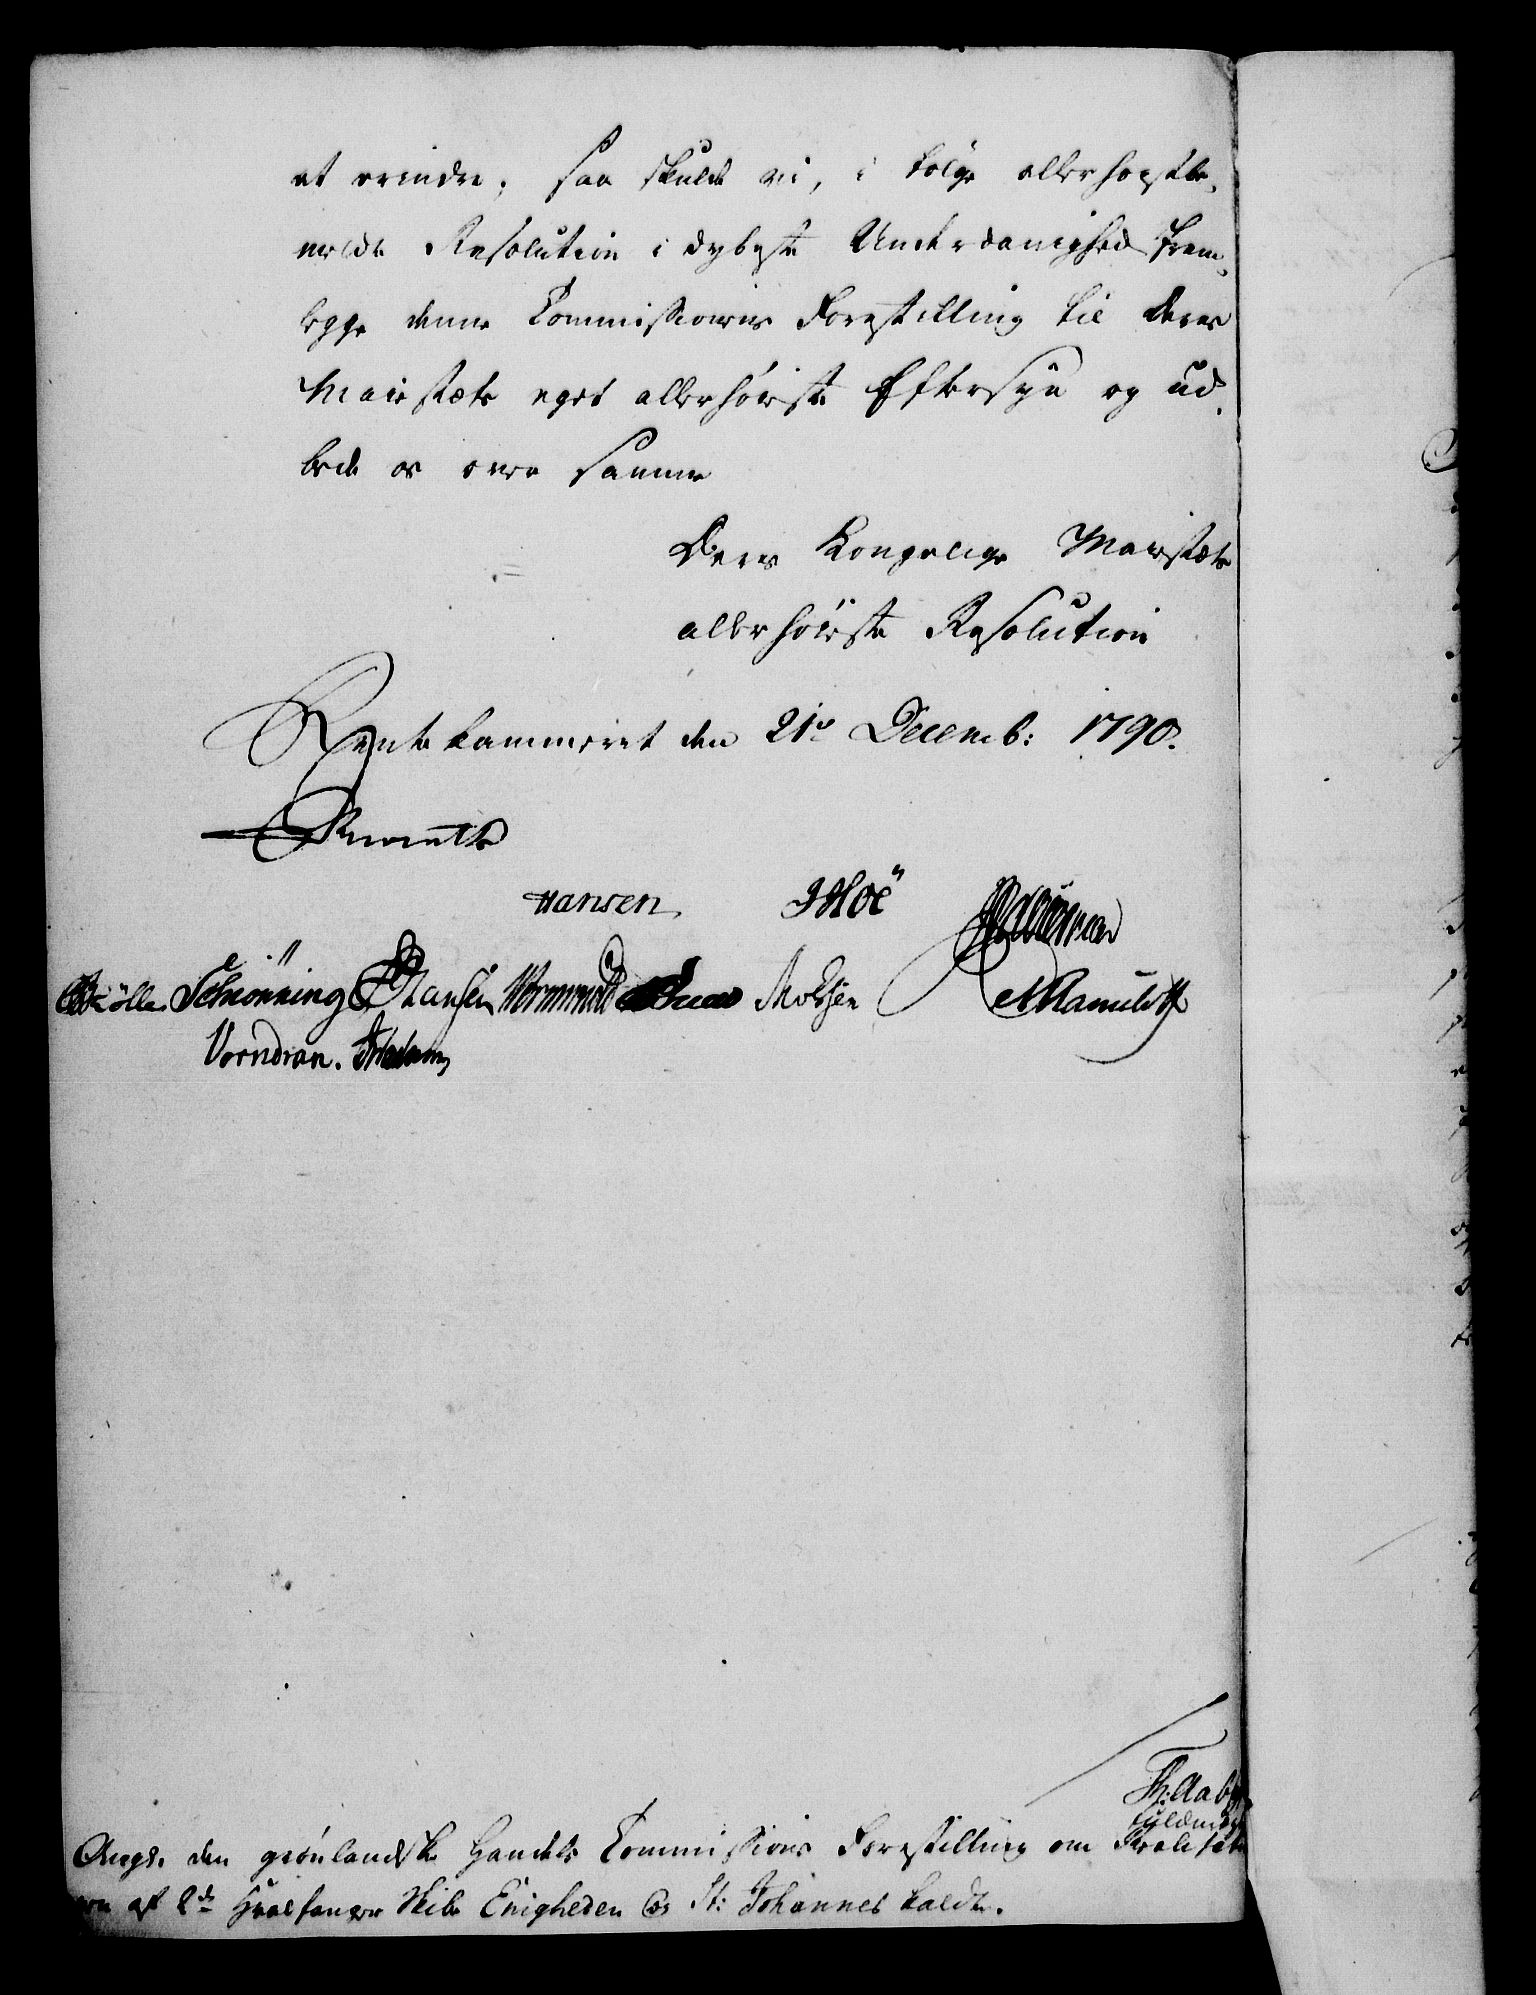 at erindre; saa skulde vi, i følge allerhøystbe-
meldte Resolution i dybeste Underdanighed frem-
legge denne Commissions Forestilling til Deres
Majestæts eget allerhøieste Eftersyn og ud-
bede os over samme
Deres Kongelige Majestæts
allerhøieste Resolution
Rentekammeret den 21de Decemb: 1790.
Reventlow
Hansen JHoë
Schiönning Hansen Wormskiold Motzfen NRamulsth
Vorndran.
Ang. den grønlandske Handels Commissions Forestilling om
af 2de Hvalfanger Skibe Enigheden og St: Johannes kaldte.